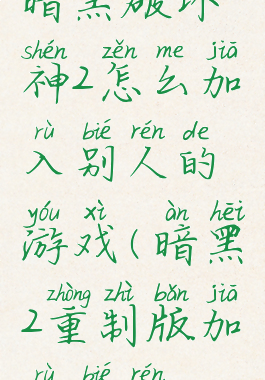 暗黑破坏
shén zěn me jiā
神2怎么加
rù bié rén de
入别人的
yóu xì àn hēi
游戏(暗黑
zhòng zhì bǎn jiā
2重制版加
rù bié rén